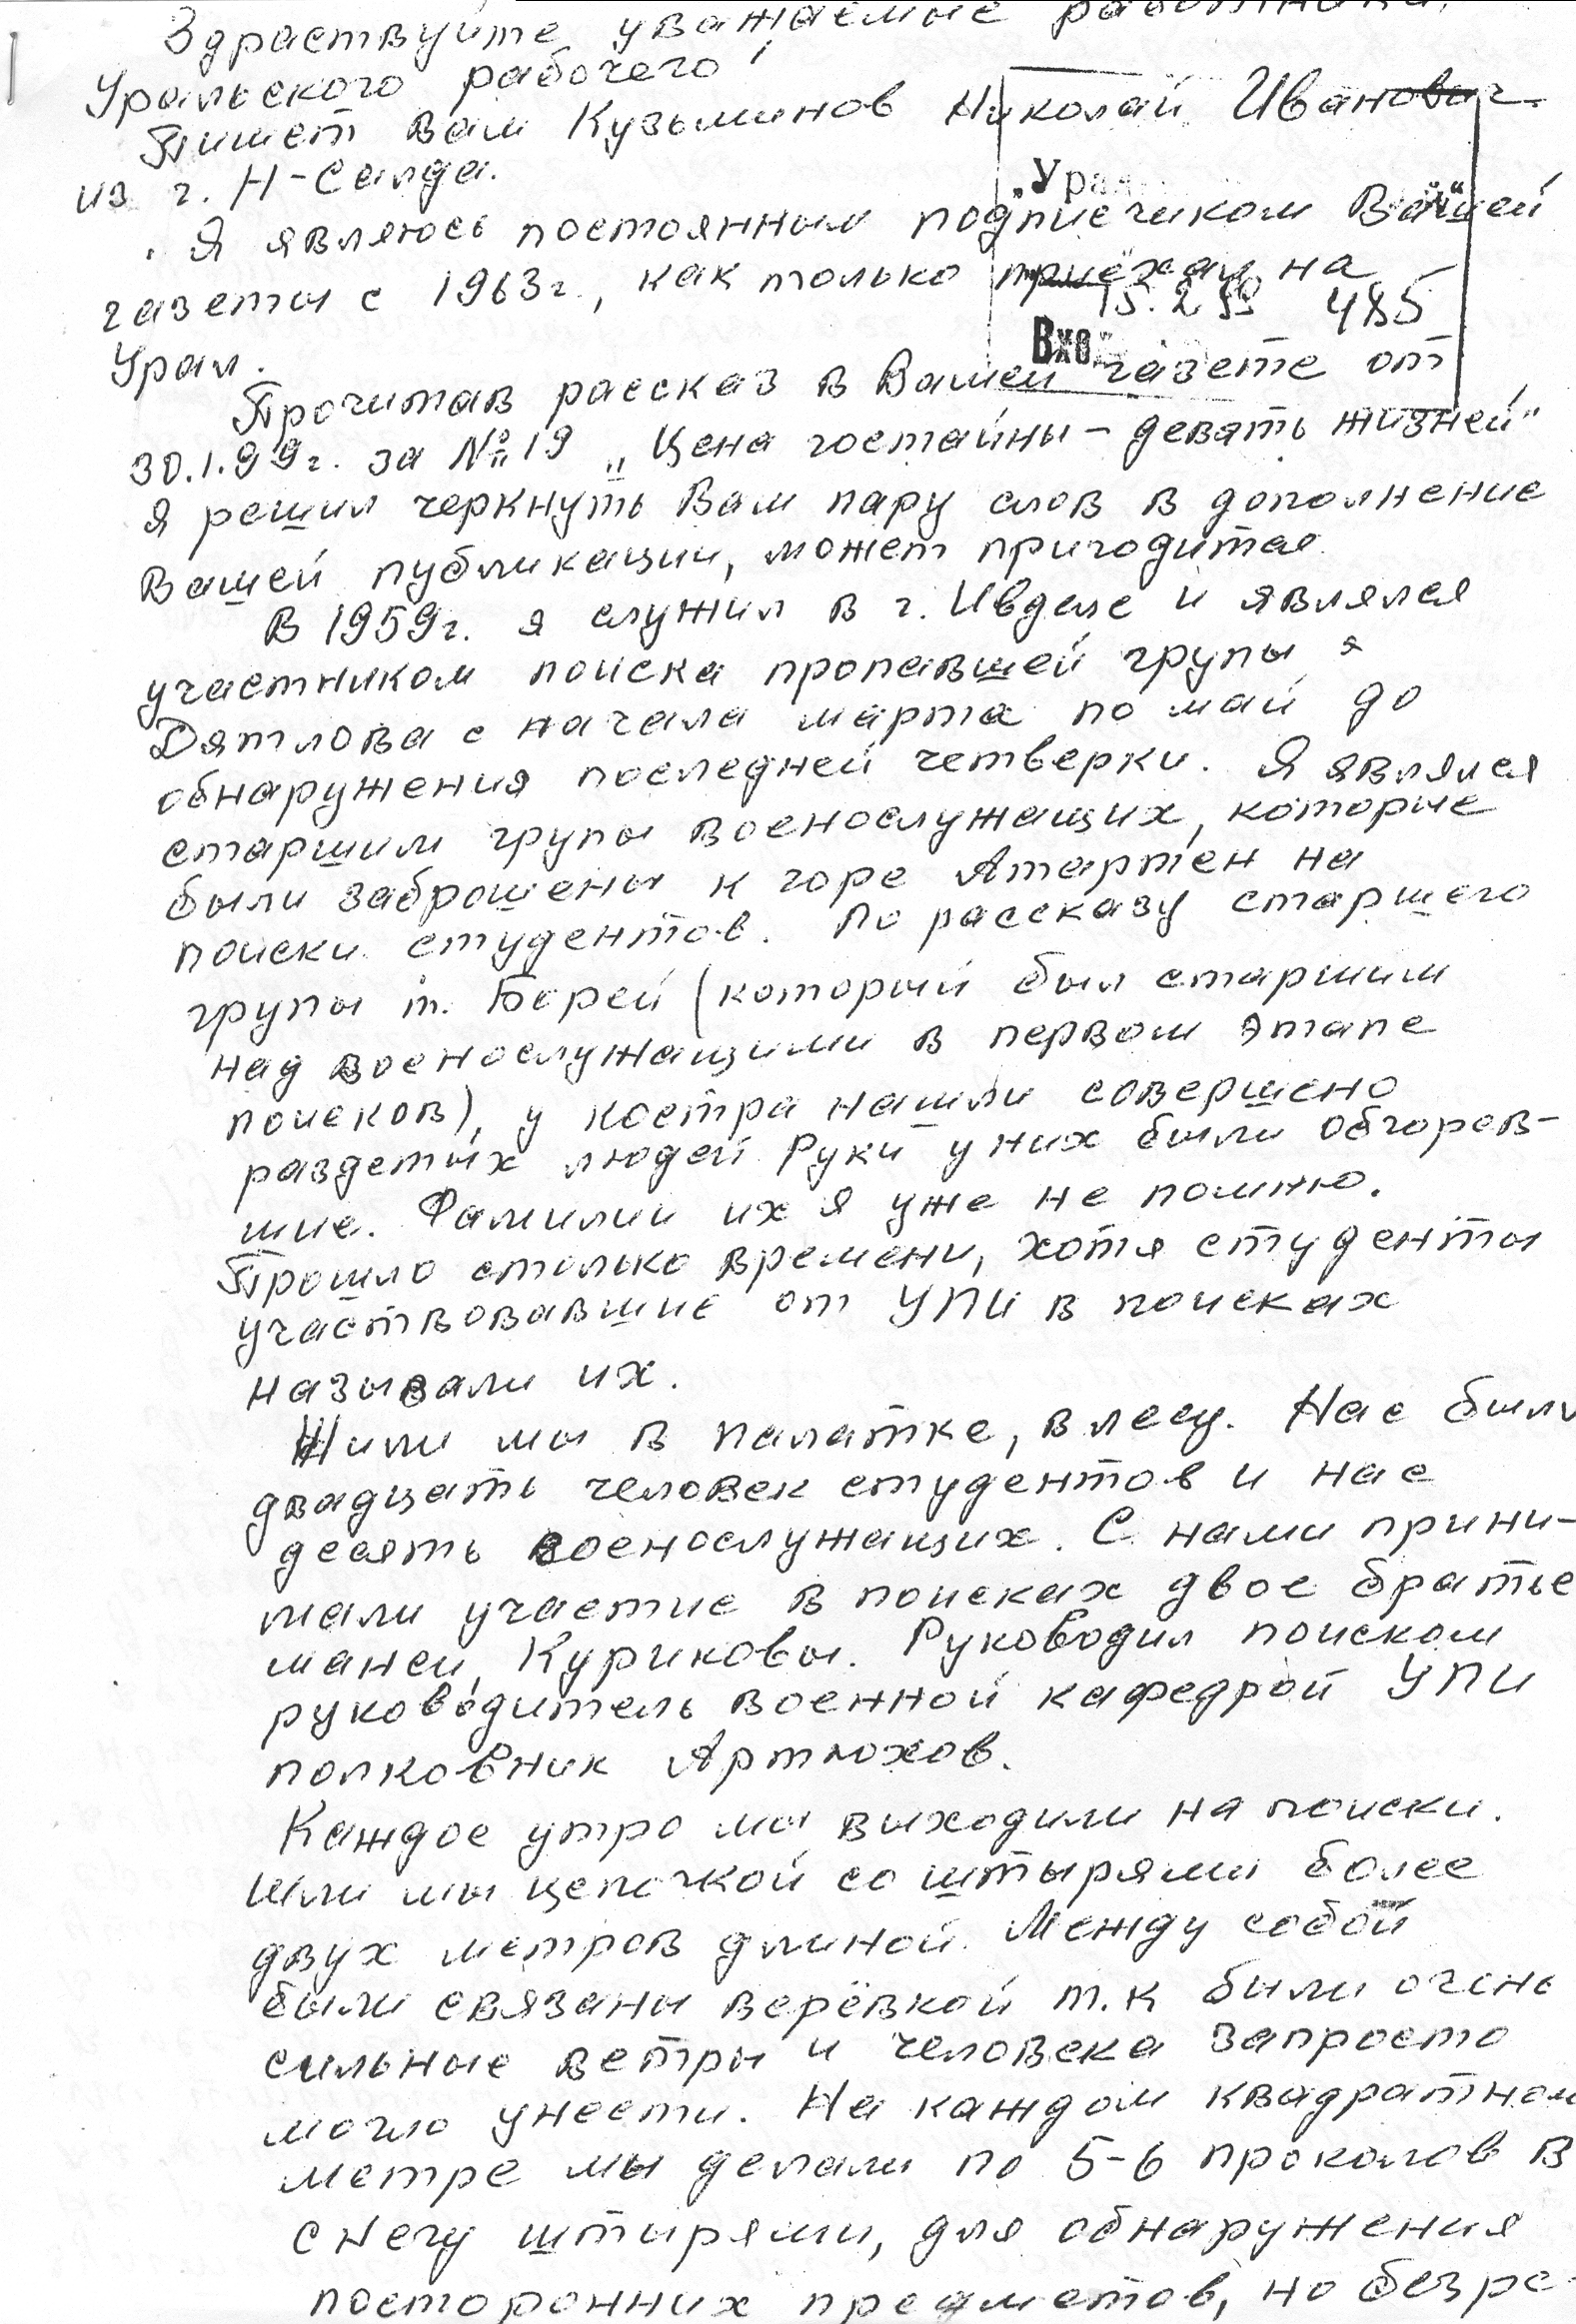 Здраствуйте уважаемые работники
Уральского рабочего!
Пишет Вам Кузьминов Николай Иванович
из г. Н-Салда.
Я являюсь постоянным подписчиком Вашей
газеты с 1963г., как только приехал на
Урал.
"Урал
15.2 99 485
Вхо
Прочитав рассказ в Вашей газете от
30.1.99г. за №19 „Цена гостайны – девять жизней"
я решил черкнуть Вам пару слов в дополнение
Вашей публикации, может пригодится.
В 1959г. я служил в г. Ивделе и являлся
участником поиска пропавшей групы
Дятлова с начала марта по май до
обнаружения последней четверки. Я являлся
старшим групы военослужащих, которые
были заброшены к горе Атартен на
поиски студентов. По рассказу старшего
групы т. Борей (который был старшим
над военослужащими в первом этапе
поисков), у костра нашли совершено
раздетых людей. Руки у них были обгорев-
шие. Фамилии их я уже не помню.
Прошло столько времени, хотя студенты
участвовавшие от УПИ в поисках
называли их.
Жили мы в палатке, в лесу. Нас были
двадцать человек студентов и нас
десять военослужащих. С нами прини-
мали участие в поисках двое братье
манси, Куриковы. Руководил поиском
руководитель военной кафедрой УПИ
полковник Артюхов.
Каждое утро мы выходили на поиски.
Шли мы цепочкой со штырями более
двух метров длиной. Между собой
были связаны верёвкой т.к были очень
сильные ветры и человека запросто
могло унести. На каждом квадратном
метре мы делали по 5-6 проколов в
снегу штырями, для обнаружения
посторонних предметов, но безре-